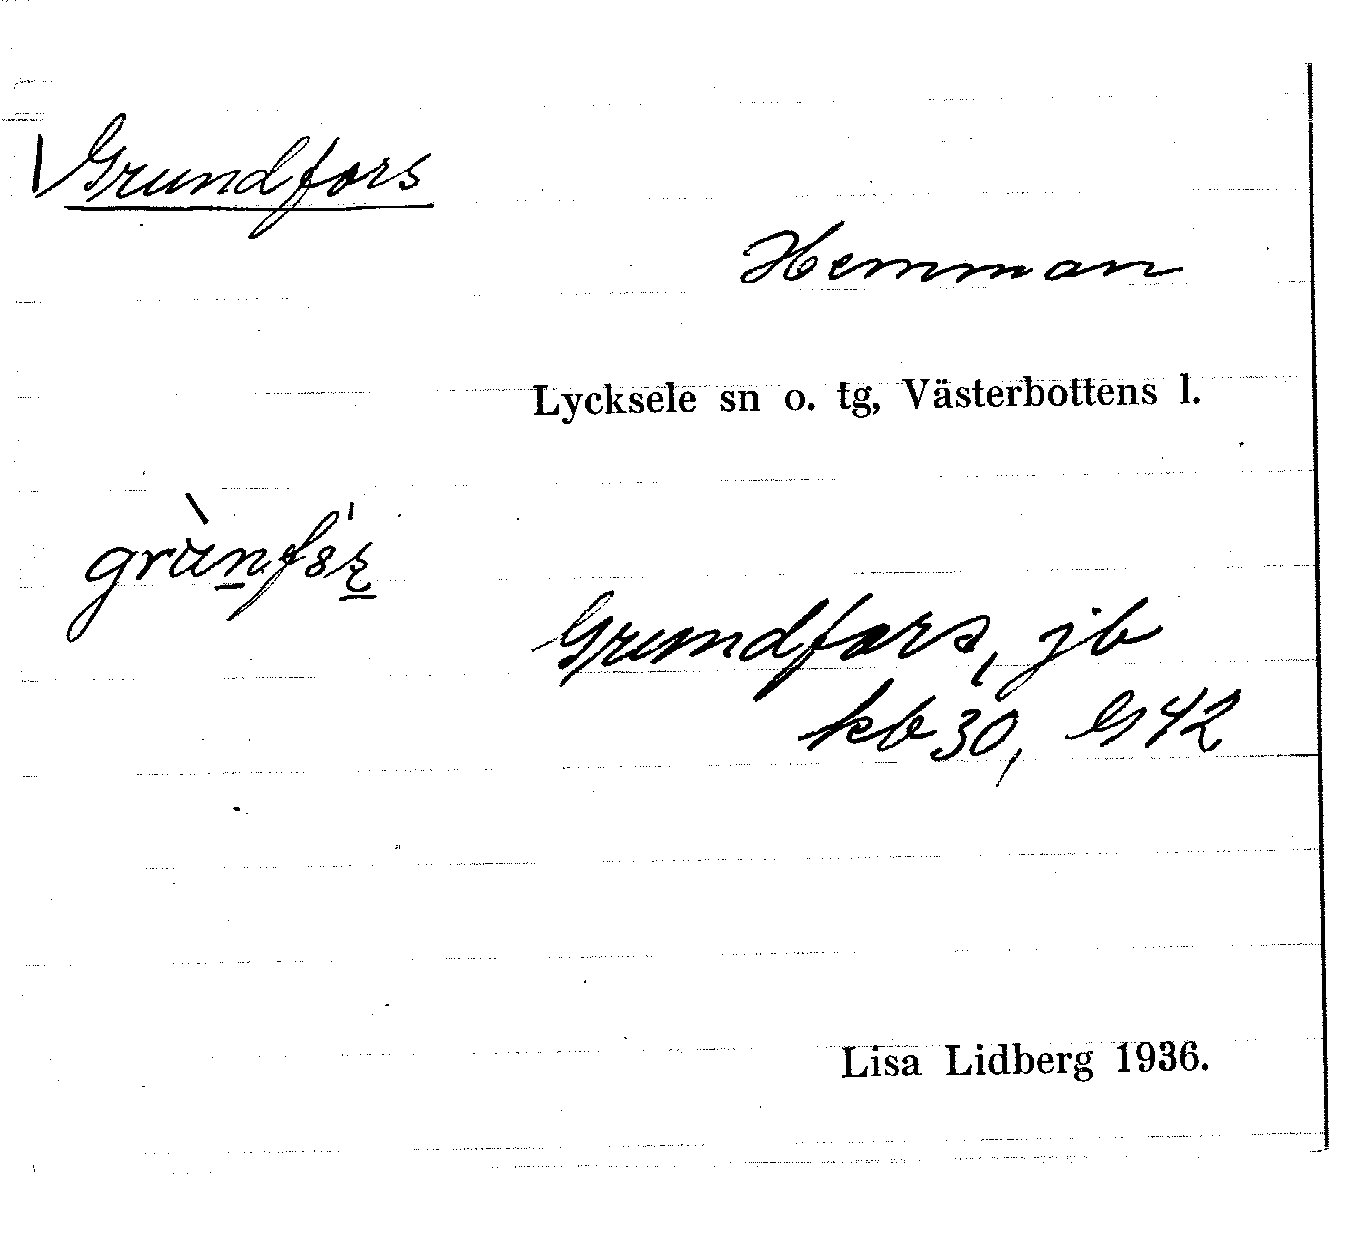 Grundfors
Hemman
Lycksele sn o. tg, Västerbottens l.
Grundfors, jb
kb 30, G 42
Lisa Lidberg 1936.